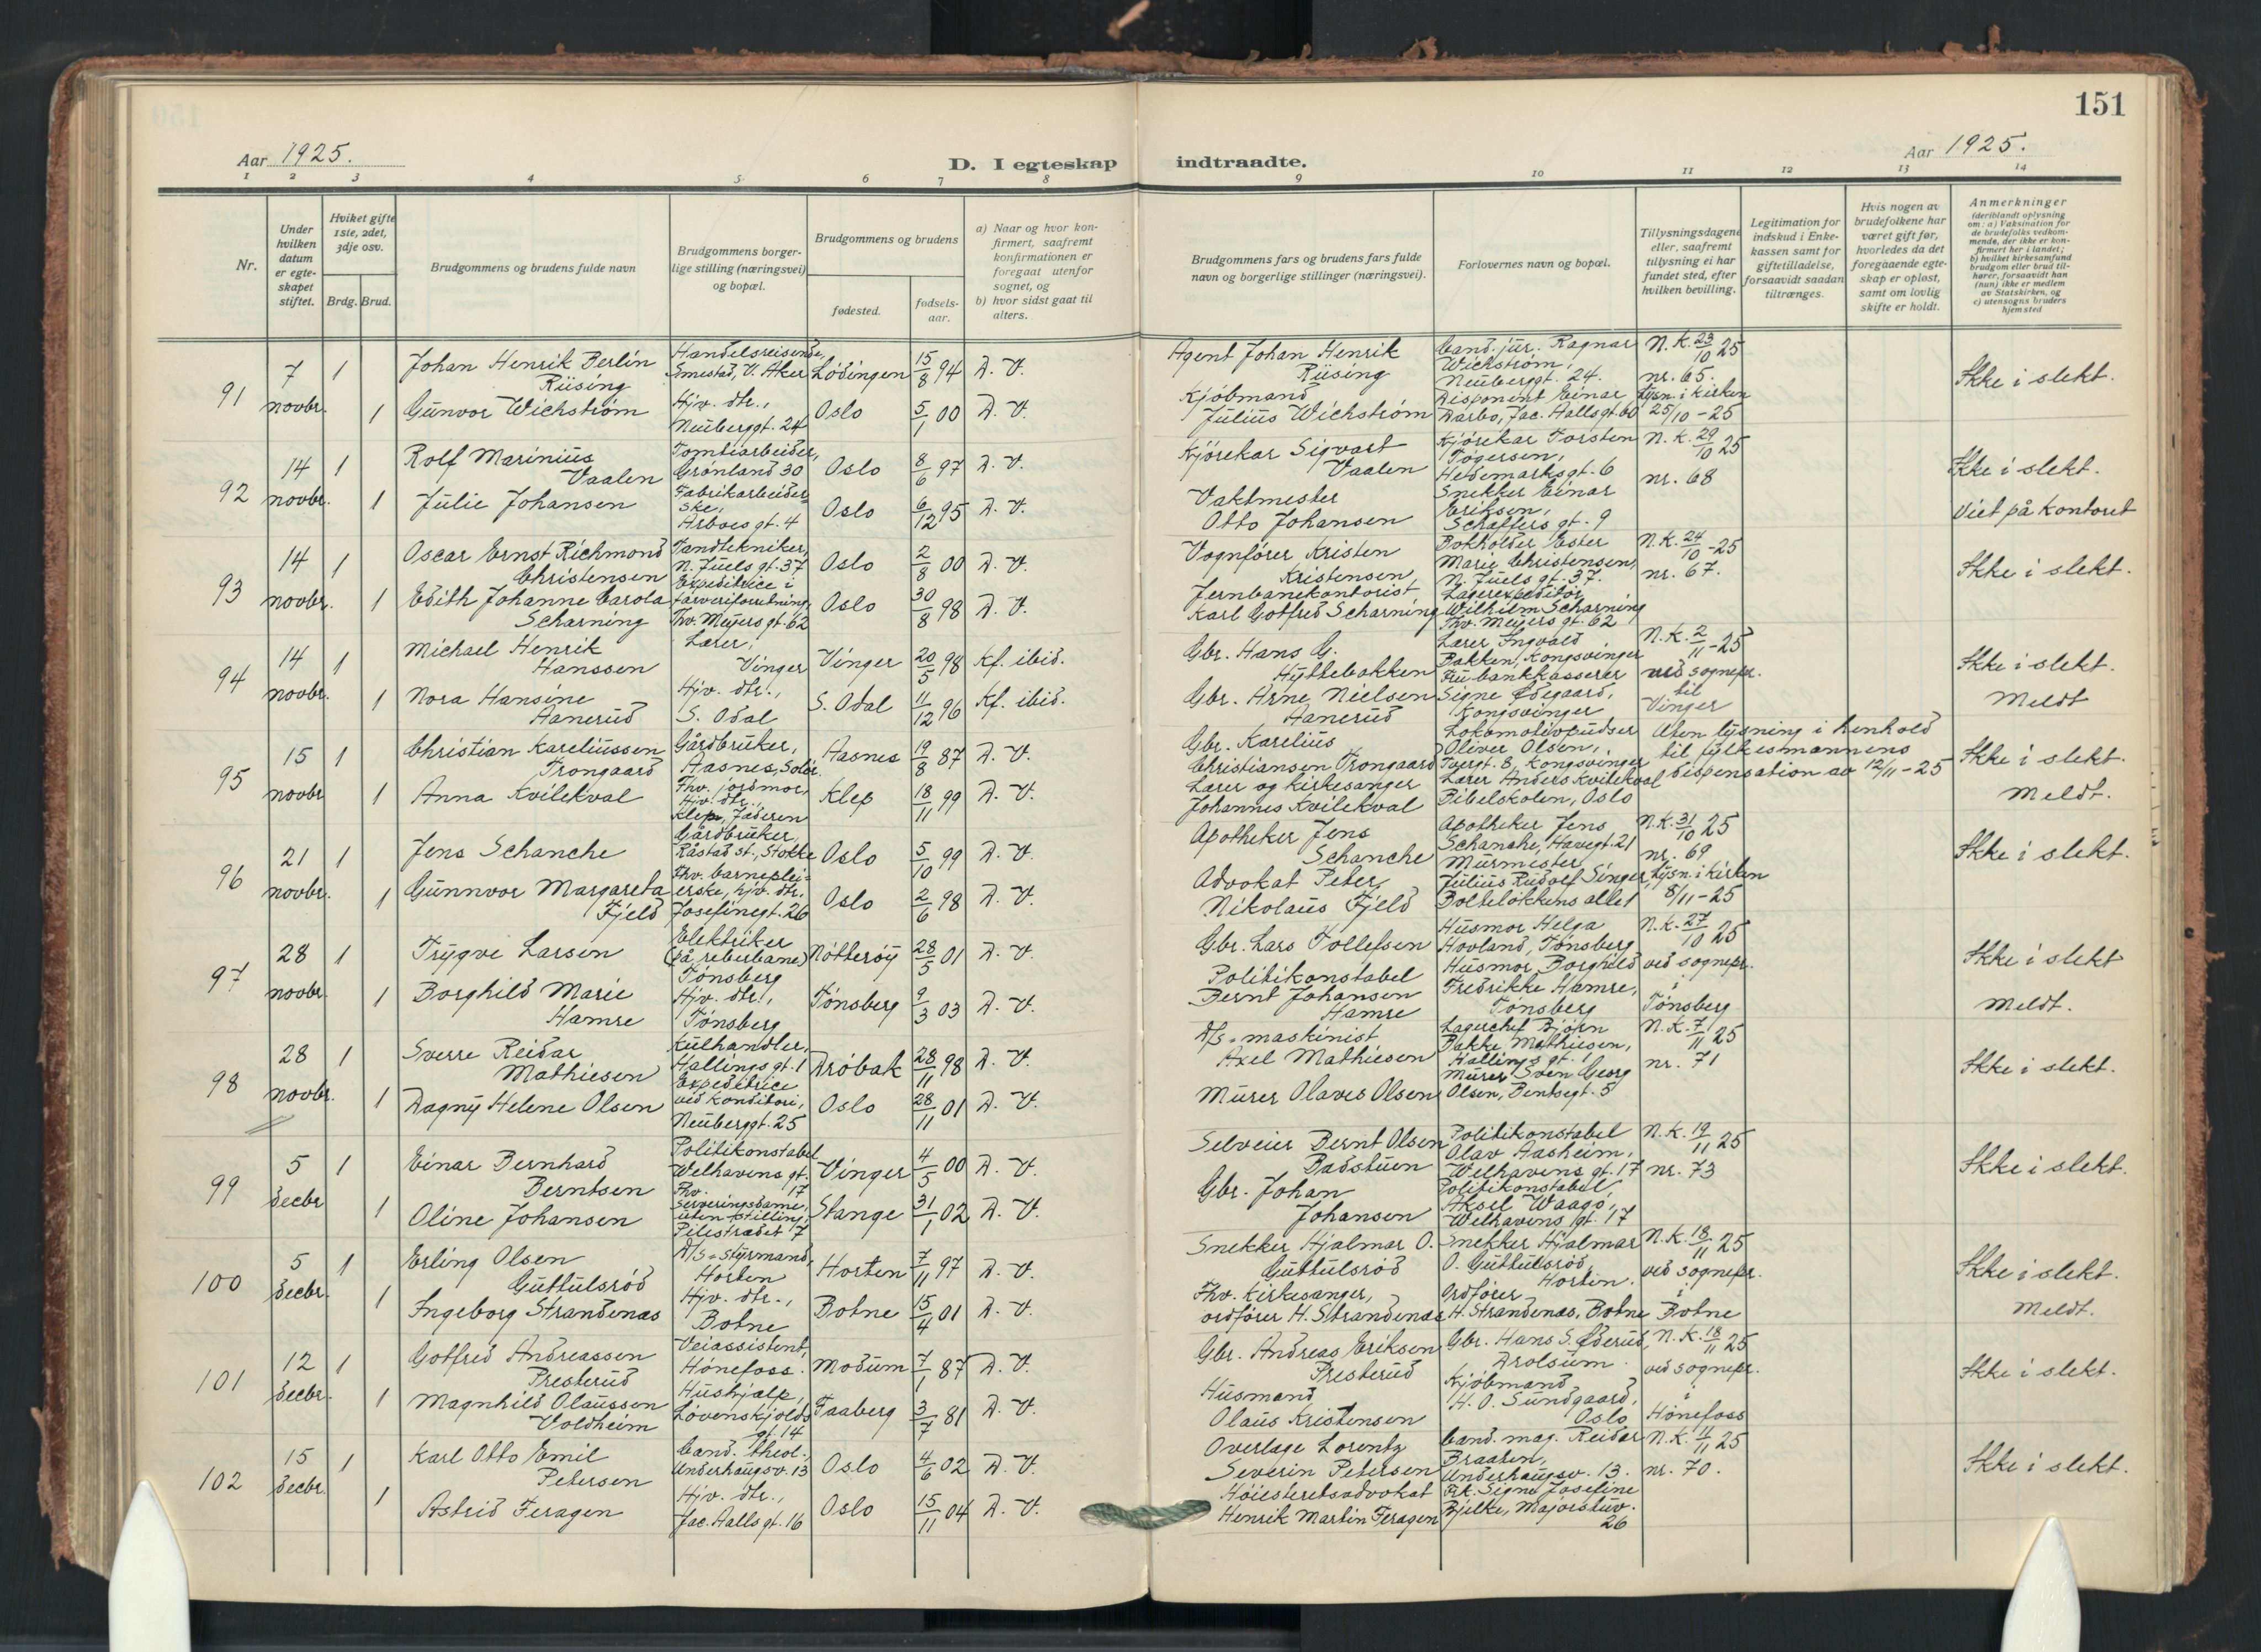 151
Aar 1925.
D. I egteskap indtraadte.
Aar 1925.
1 2 3 4 5 6 7 8 9 10 11 12 13 14
Nr.
Under hvilken datum er egte-skapet stiftet.
Hviket gifte 1ste, 2det, 3dje osv.
Brdg. Brud.
Brudgommens og brudens fulde navn
Brudgommens borger-lige stilling (næringsvei) og bopæl.
Brudgommens og brudens
fødested.
fødsels-aar.
a) Naar og hvor kon-firmert, saafremt konfirmationen er foregaat utenfor sognet, og
b) hvor sidst gaat til alters.
Brudgommens fars og brudens fars fulde navn og borgerlige stillinger (næringsvei).
Forlovernes navn og bopæl.
Tillysningsdagene eller, saafremt tillysning ei har fundet sted, efter hvilken bevilling.
Legitimation for indskud i Enke-kassen samt for giftetilladelse, forsaavidt saadan tiltrænges.
Hvis nogen av brudefolkene har været gift før, hvorledes da det foregaaende egte-skap er opløst, samt om lovlig skifte er holdt.
Anmerkninger
(deriblandt oplysning om: a) Vaksination for de brudefolks vedkom-mende, der ikke er kon-firmert her i landet; b) hvilket kirkesamfund brudgom eller brud til-hører, forsaavidt han (hun) ikke er medlem av Statskirken, og c) utensogns bruders hjemsted
91
7 novbr.
1
Johan Henrik Berlin Riising
Handelsreisende, Smestad, V. Aker
Lödingen
15/8 94
D. V.
Agent Johan Henrik Riising
Cand. jur. Ragnar Wichstrøm, Neuberggt. 24.
N. K. 23/10 25
nr. 65.
Ikke i slekt.
1
Gunvor Wichstrøm
Hjv. dtr., Neuberggt. 24
Oslo
5/1 00
D. V.
Kjöbmand Julius Wichstrøm
Disponent Einar Darbo, Jac. Aallsgt. 60
Lysn. i kirken 25/10-25
92
14 novbr.
1
Rolf Marinius Vaalen
Tomtearbeider, Grønland 30
Oslo
8/6 97
D. V.
Kjörekar Sigvart Vaalen
Kjörekar Torsten Tøgersen, Hedemarksgt. 6
N. K. 29/10 25
nr. 68
Ikke i slekt.
1
Julie Johansen
Fabrikarbeider-ske, Arboesgt. 4
Oslo
6/12 95
D. V.
Vaktmester Otto Johansen
Snekker Einar Eriksen, Schaffers gt. 9
Viet på kontoret
93
14 novbr.
1
Oscar Ernst Richmond Christensen
Tandtekniker, N. Juels gt. 37
Oslo
2/8 00
D. V.
Vognfører Kristen Kristensen
Bokholder Ester Marie Christensen, N. Juels gt. 37.
N. K. 24/10-25
nr. 67.
Ikke i slekt.
1
Edith Johanne Carola Scharning
Expeditrice i farveriforretning, Thv. Meyersgt. 62
Oslo
30/8 98
D. V.
Jernbanekontorist Karl Gotfred Scharning
Lagerexpeditør Wilhelm Scharning Thv. Meyers gt. 62
94
14 novbr.
1
Michael Henrik Hanssen
Lærer, Vinger
Vinger
20/5 98
Kf. ibid.
Gbr. Hans G. Hyttebakken
Lærer Ingvald Bakken, Kongsvinger
N. K. 2/11-25
ved sognepr. til Vinger
Ikke i slekt.
1
Nora Hansine Aanerud
Hjv. dtr., S. Odal
S. Odal
11/12 96
Kf. ibid.
Gbr. Arne Nielsen Aanerud
Fru bankkasserer Signe Ødegaard, Kongsvinger
Meldt
95
15 novbr
1
Christian Kareliussen Trongaard
Gårdbruker, Aasnes, Solør.
Aasnes
19/8 87
D. V.
Gbr. Karelius Christiansen Trongaard
Lokomotivpudser Oliver Olsen, Tvergt. 8, Kongsvinger
Uten lysning i henhold til fylkesmannens dispensation av 12/11-25
Ikke i slekt.
1
Anna Kvilekval
Fhv. jordmor, Hjv. dtr., Klepp, Jæderen
Klep
18/11 99
D. V.
Lærer og kirkesanger Johannes Kvilekval
Lærer Anders Kvilekval Bibelskolen, Oslo
Meldt.
96
21 novbr.
1
Jens Schanche
Gårdbruker, Råstad st., Stokke
Oslo
5/10 99
D. V.
Apotheker Jens Schanche
Apotheker Jens Schanche, Havegt. 21
N. K. 31/10 25
nr. 69
Ikke i slekt.
1
Gunnvor Margareta Fjeld
Fhv. barneplei-erske, hjv. dtr. Josefinegt. 26
Oslo
2/6 98
D. V.
Advokat Peter Nikolaus Fjeld
Murmester Julius Rudolf Singer, Bolteløkkens allé 1
Lysn. i kirken 8/11-25
97
28 novbr.
1
Trygve Larsen
Elektriker (på reberbane) Tønsberg
Nötteröy
28/5 01
D. V.
Gbr. Lars Tollefsen
Husmor Helga Hovland, Tønsberg
N. K. 27/10 25
ved sognepr. i Tønsberg
Ikke i slekt
1
Borghild Marie Hamre
Hjv. dtr., Tønsberg
Tønsberg
9/3 03
D. V.
Politikonstabel Bernt Johansen Hamre
Husmor Borghild Fredrikke Hamre, Tønsberg
Meldt.
98
28 novbr.
1
Sverre Reidar Mathiesen
Kulhandler, Hallings gt. 1
Drøbak
28/11 98
D. V.
D/S-maskinist Axel Mathiesen
Lagerchef Bjørn Bakke Mathiesen, Hallings gt. 1
N. K. 7/11 25
nr. 71
Ikke i slekt.
1
Dagny Helene Olsen
Expeditrice ved konditori, Neuberggt. 25
Oslo
28/11 01
D. V.
Murer Olaves Olsen
Murer Sven Georg Olsen, Bentsegt. 5
99
5 decbr
1
Einar Bernhard Berntsen
Politikonstabel Welhavens gt. 17
Vinger
4/5 00
D. V.
Selveier Bernt Olsen Badstuen
Politikonstabel Olav Aasheim, Welhavens gt. 17
N. K. 19/11 25
nr. 73
Ikke i slekt.
1
Oline Johansen
Fhv. serveringsdame, uten stilling, Pilestrædet 7
Stange
31/1 02
D. V.
Gbr. Johan Johansen
Politikonstabel, Aksel Waagø, Welhavens gt. 17
100
5 decbr.
1
Erling Olsen Guttulsrød
D/S-styrmand, Horten
Horten
7/11 97
D. V.
Snekker Hjalmar O. Guttulsrød
Snekker Hjalmar O. Guttulsrød, Horten.
N. K. 18/11 25
ved sognepr. i Botne
Ikke i slekt.
1
Ingeborg Strandenæs
Hjv. dtr., Botne
Botne
15/4 01
D. V.
Fhv. kirkesanger, ordfører H. Strandenæs
Ordfører H. Strandenæs, Botne
Meldt.
101
12 decbr.
1
Gotfred Andreassen Presterud
Veiassistent, Hønefoss.
Modum
7/1 87
D. V.
Gbr. Andreas Eriksen Presterud
Gbr. Hans S. Øderud, Drolsum.
N. K. 18/11 25
ved sognepr. i Hønefoss
Ikke i slekt.
1
Magnhild Olaussen Voldheim
Hushjælp, Løvenskjolds gt. 14
Faaberg
3/7 81
D. V.
Husmand Olaus Kristensen
Kjöbmand H. O. Sundgaard, Oslo
102
15 decbr.
1
Karl Otto Emil Petersen
Cand. theol., Underhaugsv. 13
Oslo
4/6 02
D. V.
Overlæge Lorentz Severin Petersen
Cand. mag. Reidar Braaten, Underhaugsv. 13.
N. K. 11/11 25
nr. 70.
Ikke i slekt.
1
Astrid Feragen
Hjv. dtr., Jac. Aalls gt. 16
Oslo
15/11 04
D. V.
Høiesteretsadvokat Henrik Martin Feragen
Frk. Signe Josefine Bjelke, Majorstuv. 26